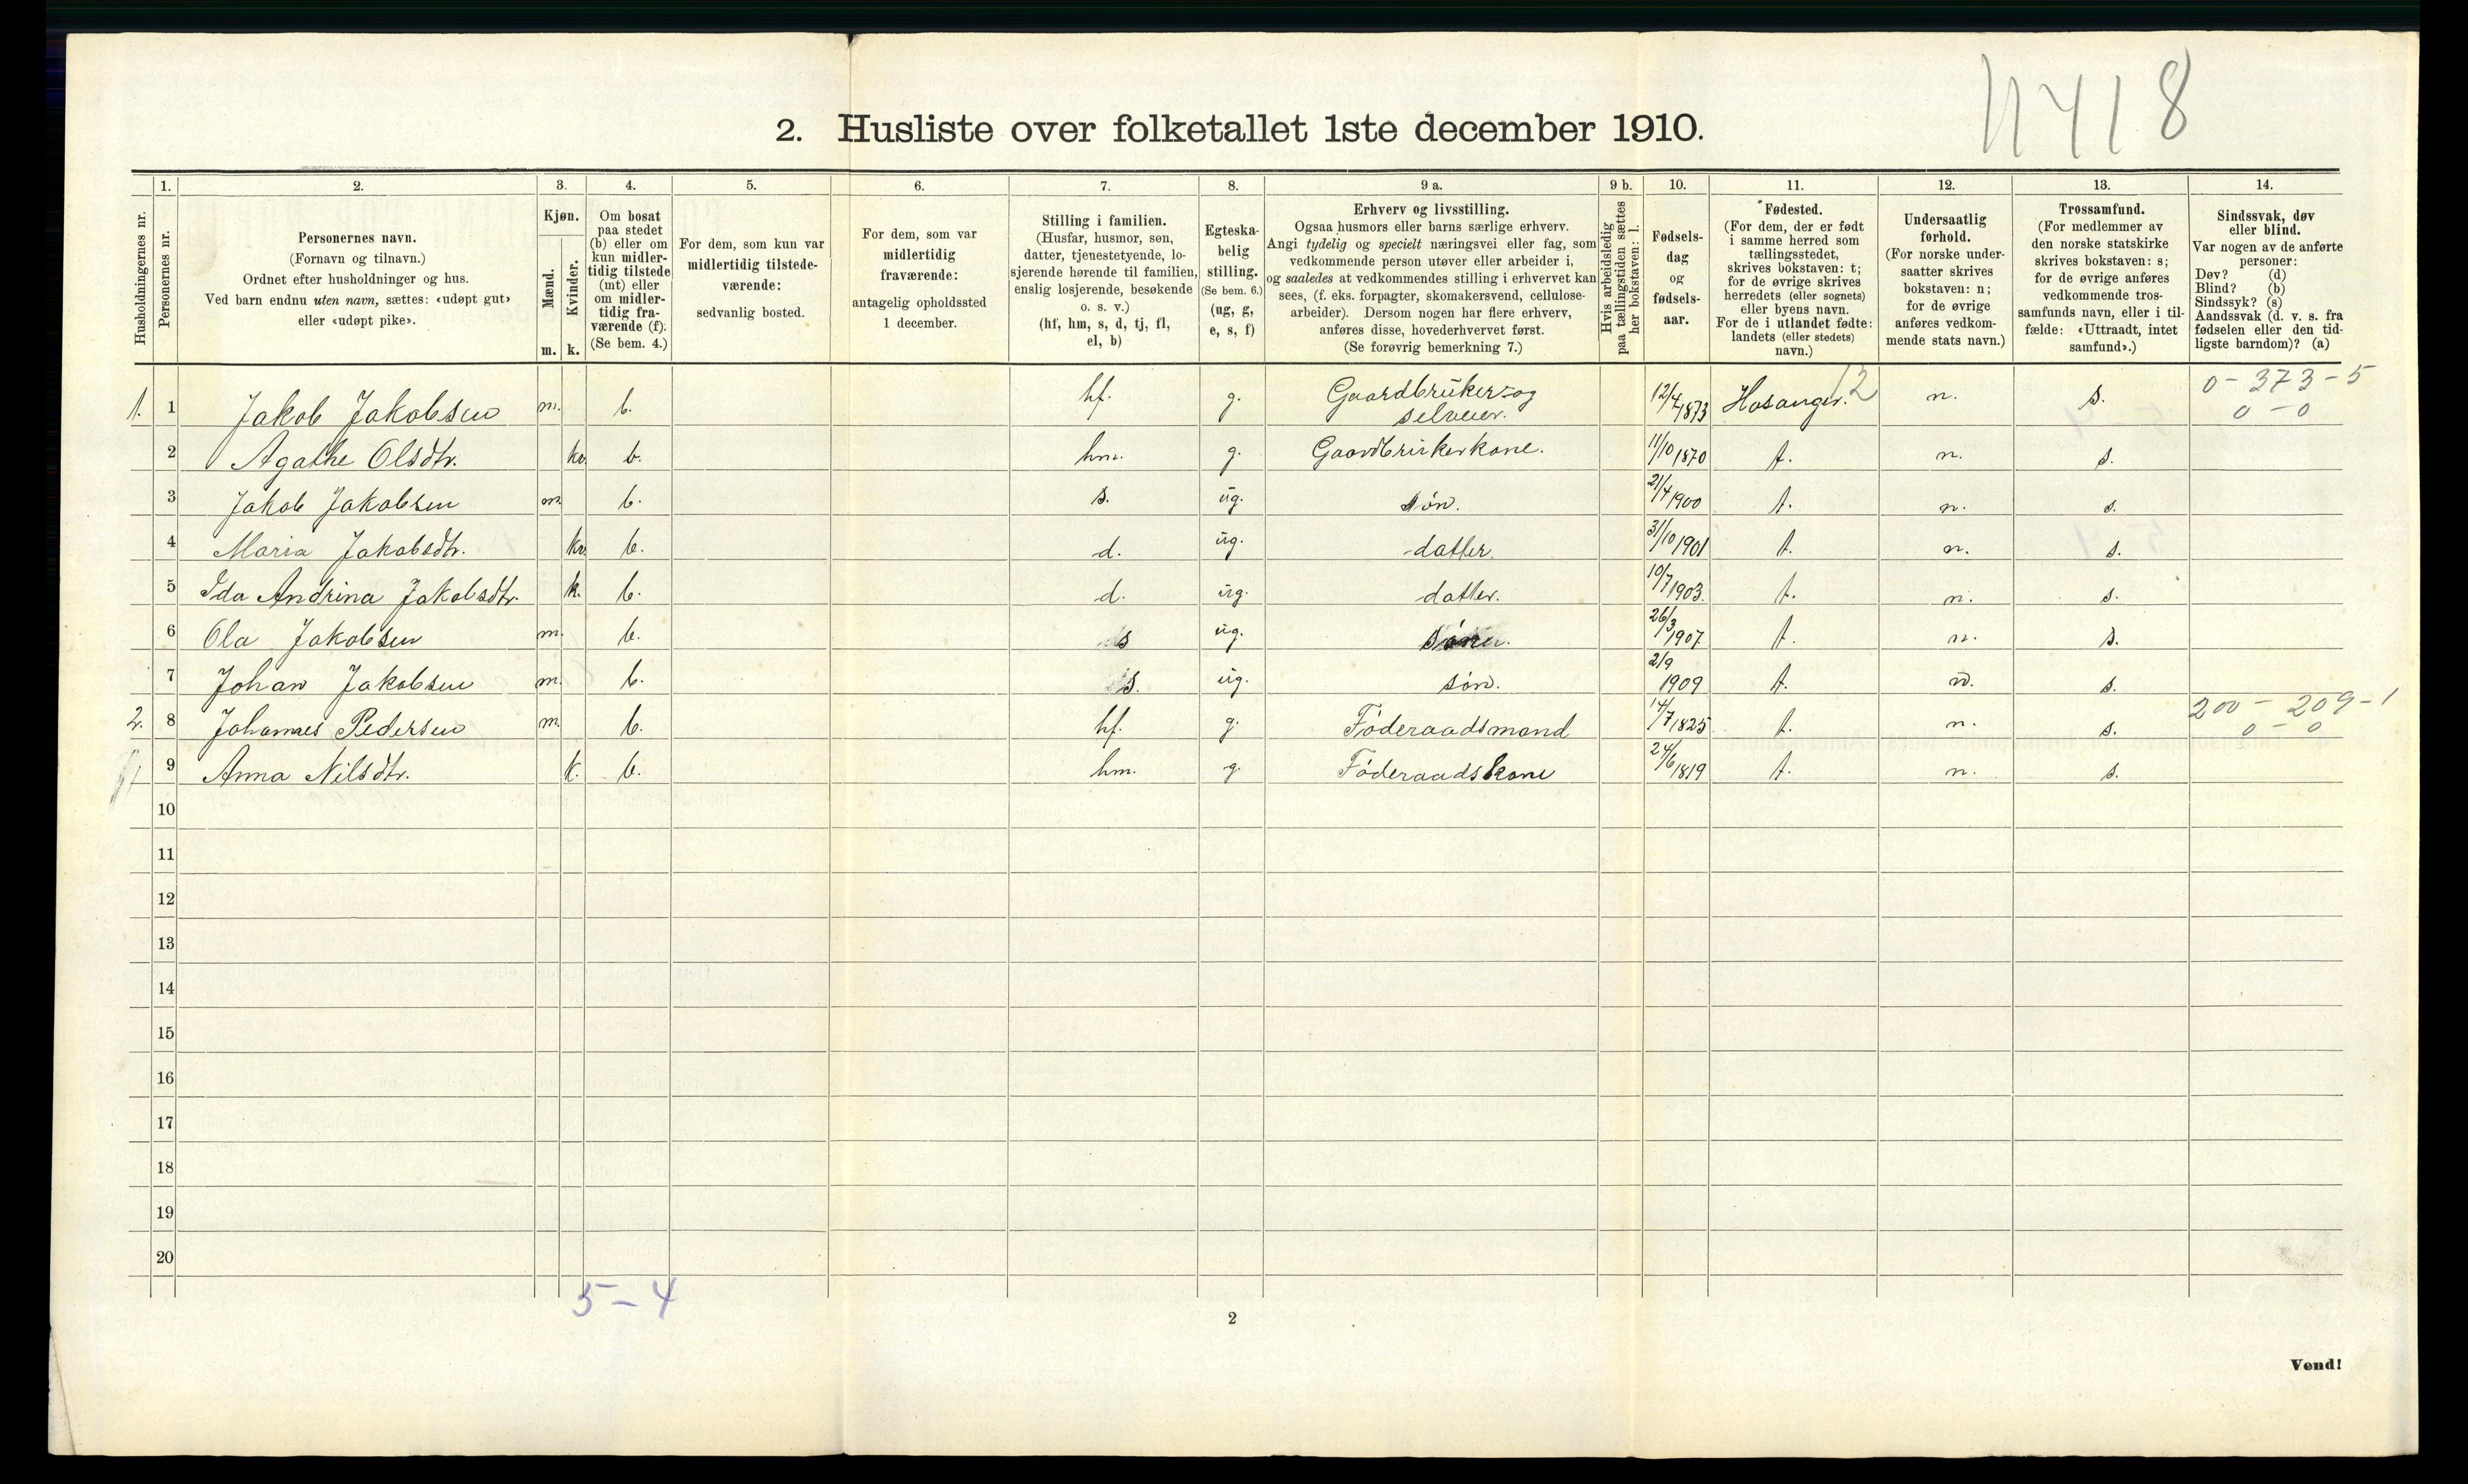 11418
2. Husliste over folketallet 1ste december 1910.
Husholdningernes nr.
1. Personernes nr.
2. Personernes navn.
(Fornavn og tilnavn.)
Ordnet efter husholdninger og hus.
Ved barn endnu uten navn, sættes: «udøpt gut»
eller «udøpt pike».
3. Kjøn.
Mænd. m.
Kvinder. k.
4. Om bosat
paa stedet
(b) eller om
kun midler-
tidig tilstede
(mt) eller
om midler-
tidig fra-
værende (f).
(Se bem. 4.)
5. For dem, som kun var
midlertidig tilstede-
værende:
sedvanlig bosted.
6. For dem, som var
midlertidig
fraværende:
antagelig opholdssted
1 december.
7. Stilling i familien.
(Husfar, husmor, søn,
datter, tjenestetyende, lo-
sjerende hørende til familien,
enslig losjerende, besøkende
o. s. v.)
(hf, hm, s, d, tj, fl,
el, b)
8. Egteska-
belig
stilling.
(Se bem. 6.)
(ug, g,
e, s, f)
9 a. Erhverv og livsstilling.
Ogsaa husmors eller barns særlige erhverv.
Angi tydelig og specielt næringsvei eller fag, som
vedkommende person utøver eller arbeider i,
og saaledes at vedkommendes stilling i erhvervet kan
sees, (f. eks. forpagter, skomakersvend, cellulose-
arbeider). Dersom nogen har flere erhverv,
anføres disse, hovederhvervet først.
(Se forøvrig bemerkning 7.)
9 b. Hvis arbeidsledig
paa tællingstiden sættes
her bokstaven: l.
10. Fødsels-
dag
og
fødsels-
aar.
11. Fødested.
(For dem, der er født
i samme herred som
tællingsstedet,
skrives bokstaven: t;
for de øvrige skrives
herredets (eller sognets)
eller byens navn.
For de i utlandet fødte:
landets (eller stedets)
navn.)
12. Undersaatlig
forhold.
(For norske under-
saatter skrives
bokstaven: n;
for de øvrige
anføres vedkom-
mende stats navn.)
13. Trossamfund.
(For medlemmer av
den norske statskirke
skrives bokstaven: s;
for de øvrige anføres
vedkommende tros-
samfunds navn, eller i til-
fælde: «Uttraadt, intet
samfund».)
14. Sindssvak, døv
eller blind.
Var nogen av de anførte
personer:
Døv? (d)
Blind? (b)
Sindssyk? (s)
Aandssvak (d. v. s. fra
fødselen eller den tid-
ligste barndom)? (a)
1. 1 Jakob Jakobsen m. b. hf. g. Gaardbruker og selveier. 12/4 1873 Hosanger. 12 n. s. 0-373-5 0-0
2 Agathe Olsdtr. kv. b. hm. g. Gaardbrukerkone. 11/10 1870 t. n. s.
3 Jakob Jakobsen m. b. s. ug. søn. 21/4 1900 t. n. s.
4 Maria Jakobsdtr. kv. b. d. ug. datter. 31/10 1901 t. n. s.
5 Ida Andrina Jakobsdtr. k. b. d. ug. datter. 10/7 1903. t. n. s.
6 Ola Jakobsen m. b. s ug. 26/3 1907 t. n. s.
7 Johan Jakobsen m. b. s. ug. søn. 2/9 1909 t. n. s.
2. 8 Johannes Pedersen m. b. hf. g. Föderaadsmand 14/7 1825 t. n. s. 200-209-1 0-0
9 Anna Nilsdtr. k. b. hm. g. Föderaadskone 24/6 1819 t. n. s.
10
11
12
13
14
15
16
17
18
19
20
5-4
2
Vend!